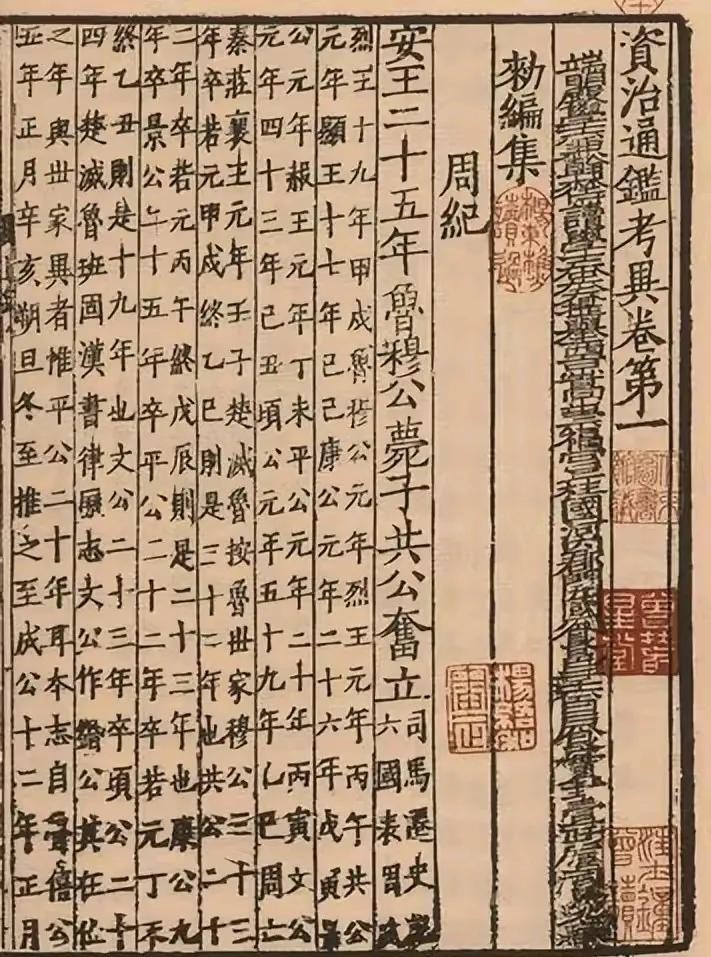 資治通鑑考異卷第一
端明殿學士兼翰林侍讀學士太中大夫提舉西京嵩山崇福宮上柱國河內郡開國公食邑
勑編集
周紀
安王二十五年魯穆公薨子共公奮立
司馬遷史
六國表
烈王十九年甲戌魯穆公元年烈王元年丙午共公
元年顯王十七年己巳康公元年二十六年戊寅景
公元年赧王元年丁未平公元年二十年丙寅文公
元年四十三年己丑頃公元年五十九年乙巳周亡
秦莊襄王元年壬子楚滅魯按魯世家穆公三十三
年卒若元甲戌終乙巳則是三十二年也共公二十
二年卒若元丙午終戊辰則是二十三年也康公九
年卒景公二十五年卒平公二十二年卒若元丁未
終乙丑則是十九年也文公二十三年卒頃公二十
四年楚滅魯班固漢書律厯志文公作緡公其在位
之年與世家異者惟平公二十年耳本志自魯僖公
五年正月辛亥朔旦冬至推之至成公十二年正月